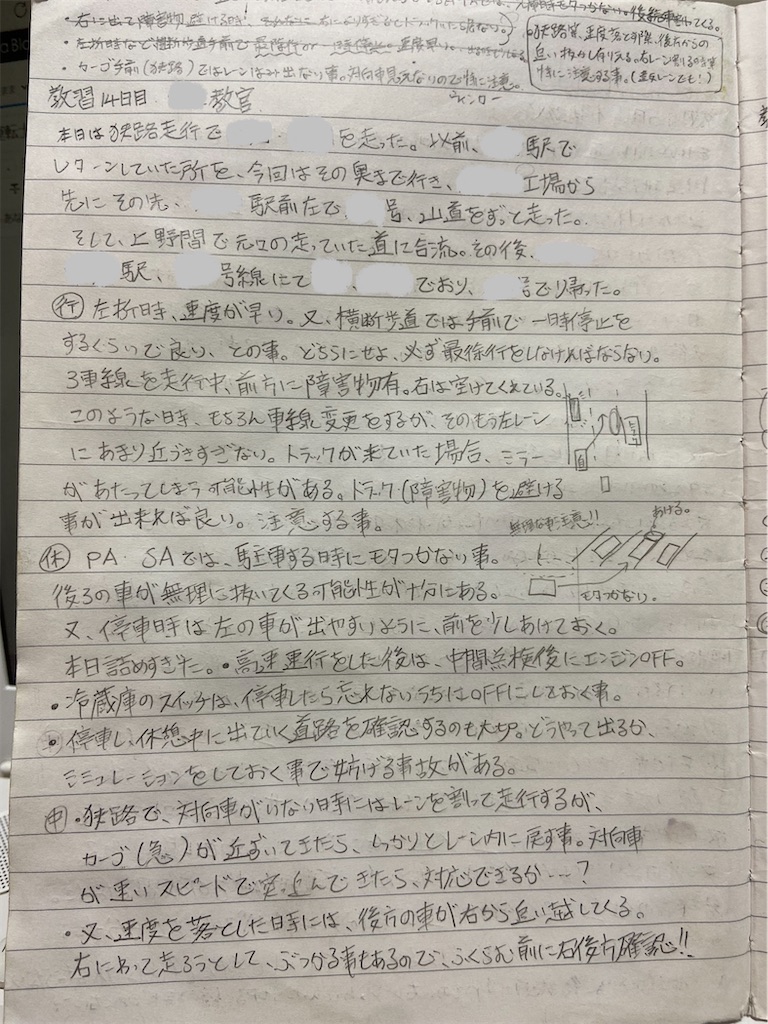 後続車割ってくる。
・右に出て障害物避ける時!
・カーゴ手前(狭路)ではレーンはみ出ない事。対向車見えないので特に注意。
・狭路實、速度落とす際、後方からの
追い抜かし有りえる。右レーン割るのも
特に注意する事。
教習14日目 教官
本日は狭路走行で を走った。以前、 駅で
Uターンしていた所を、今回はその奥まで行き、 工場から
先にその先、 駅前左で 号、山道をずっと走った。
そして、上野間で元々の走っていた道に合流。その後、
駅、 号線にて 、 でおり、 号で帰った。
行 左折時、速度が早い。又、横断歩道では手前で一時停止を
するくらいで良い、との事。どちらにせよ、必ず最徐行をしなければならない。
3車線を走行中、前方に障害物有。右は空けてくれている。
このような時、もちろん車線変更をするが、そのもう左レーン
にあまり近づきすぎない。トラックが来ていた場合、ミラー
があたってしまう可能性がある。トラック(障害物)を避ける
事が出来れば良い。注意する事。
無理な車注意!!
あける。
モタつかない。
休 PA・SAでは、駐車する時にモタつかない事。
後ろの車が無理に抜いてくる可能性が十分にある。
又、停車時は左の車が出やすいように、前を少しあけておく。
本日詰めすぎた。・高速運行をした後は、中間点検後にエンジンOFF。
・冷蔵庫のスイッチは、停車したら忘れないうちにOFFにしておく事。
・停車し、休憩中に出ていく道路を確認するのも大切。どうやって出るか、
シミュレーションをしておく事で妨げる事故がある。
申 ・狭路で、対向車がいない時にはレーンを割って走行するが、
カーゴ(急)が近づいてきたら、しっかりとレーン内に戻す事。対向車
が速いスピードで突っ込んできたら、対応できるか…?
・又、速度を落とした時には、後方の車が右から追い越してくる。
右にわって走ろうとして、ぶつかる事もあるので、ふくらむ前に右後方確認!!